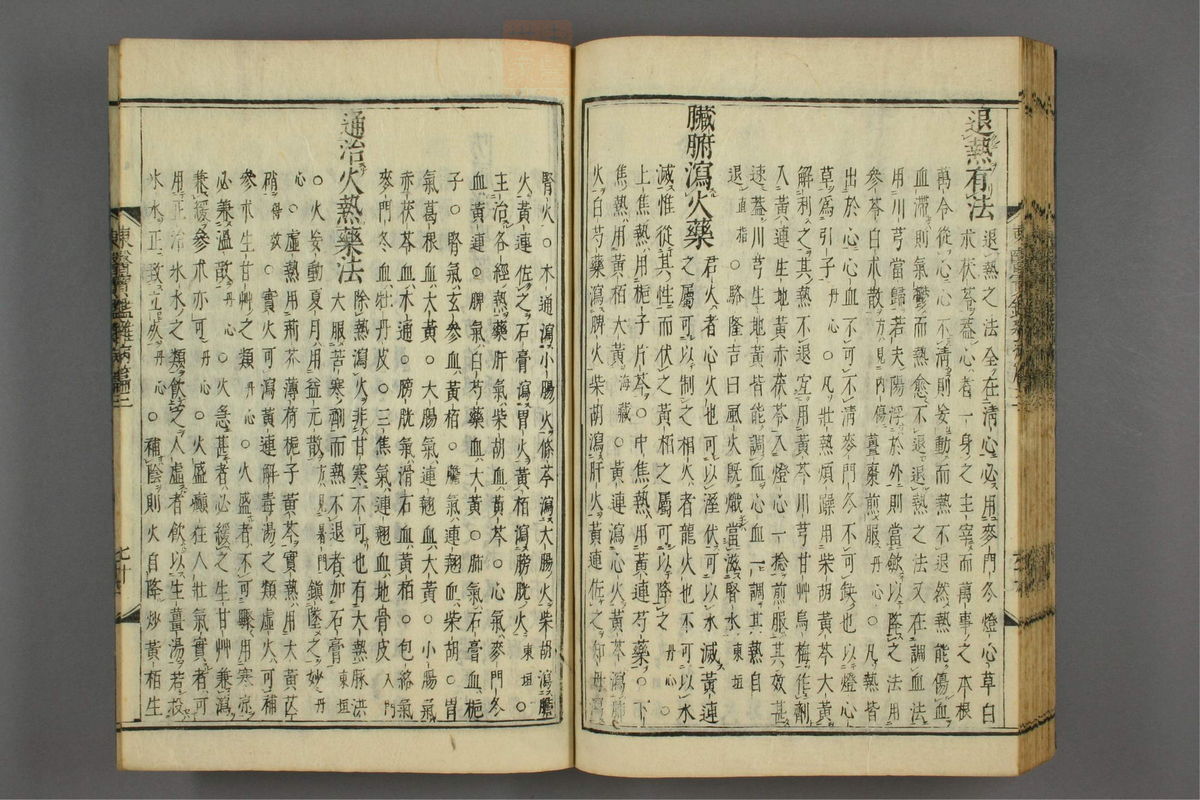 退熱有法
退熱之法全在清心必用麥門冬燈心草白
朮茯苓蓋心者一身之主宰而萬事之本根
萬令從心心不清則妄動而熱不退然熱能傷血
血滯則氣鬱而熱愈不退退熱之法又在調血法
用川芎當歸若夫陽浮於外則當歛以降之法用
參苓白朮散方見內傷薑棗煎服丹心○凡熱皆
出於心心血不可不清麥門冬不可缺也以燈心
草爲引子丹心○凡壯熱煩躁用柴胡黃芩大黃
解利之其熱不退宜用黃芩川芎甘艸烏梅作劑
入黃連生地黃赤茯苓入燈心一捻煎服其效甚
速蓋川芎生地黃皆能調血心血一調其熱自
退直指○駱隆吉曰風火既熾當滋腎水東垣
臟腑瀉火藥
君火者心火也可以溼伏可以水滅黃連
之屬可以制之相火者龍火也不可以水
滅惟從其性而伏之黃栢之屬可以降之丹心○
上焦熱用梔子片芩○中焦熱用黃連芍藥○下
焦熱用黃栢大黃海藏○黃連瀉心火黃芩瀉肺
火白芍藥瀉脾火柴胡瀉肝火黃連佐之知母瀉
腎火○木通瀉小腸火條芩瀉大腸火柴胡瀉膽
火黃連佐之石膏瀉胃火黃栢瀉膀胱火東垣○
主治各經熱藥肝氣柴胡血黃芩○心氣麥門冬
血黃連○脾氣白芍藥血大黃○肺氣石膏血梔
子○腎氣玄參血黃栢○膽氣連翹血柴胡○胃
氣葛根血大黃○大腸氣連翹血大黃○小腸氣
赤茯苓血木通○膀胱氣滑石血黃栢○包絡氣
麥門冬血牡丹皮○三焦氣連翹血地骨皮入門
通治火熱藥法
除熱瀉火非甘寒不可也有大熱脉洪
大服苦寒劑而熱不退者加石膏東垣
○火妄動夏月用益元散方見暑門鎭墜之妙丹
心○虛熱用荊芥薄荷梔子黃芩實熱用大黃芒
稍得效○實火可瀉黃連解毒湯之類虛火可補
參朮生甘艸之類丹心○火盛者不可驟用寒涼
必兼溫散丹心○火急甚者必緩之生甘艸兼瀉
兼緩參朮亦可丹心○火盛癲狂人壯氣實者可
用正治氷水之類飮之人虛者飮以生薑湯若投
氷水正致立死丹心○補陰則火自降炒黃栢生
東醫寶鑑雜病篇三
七十